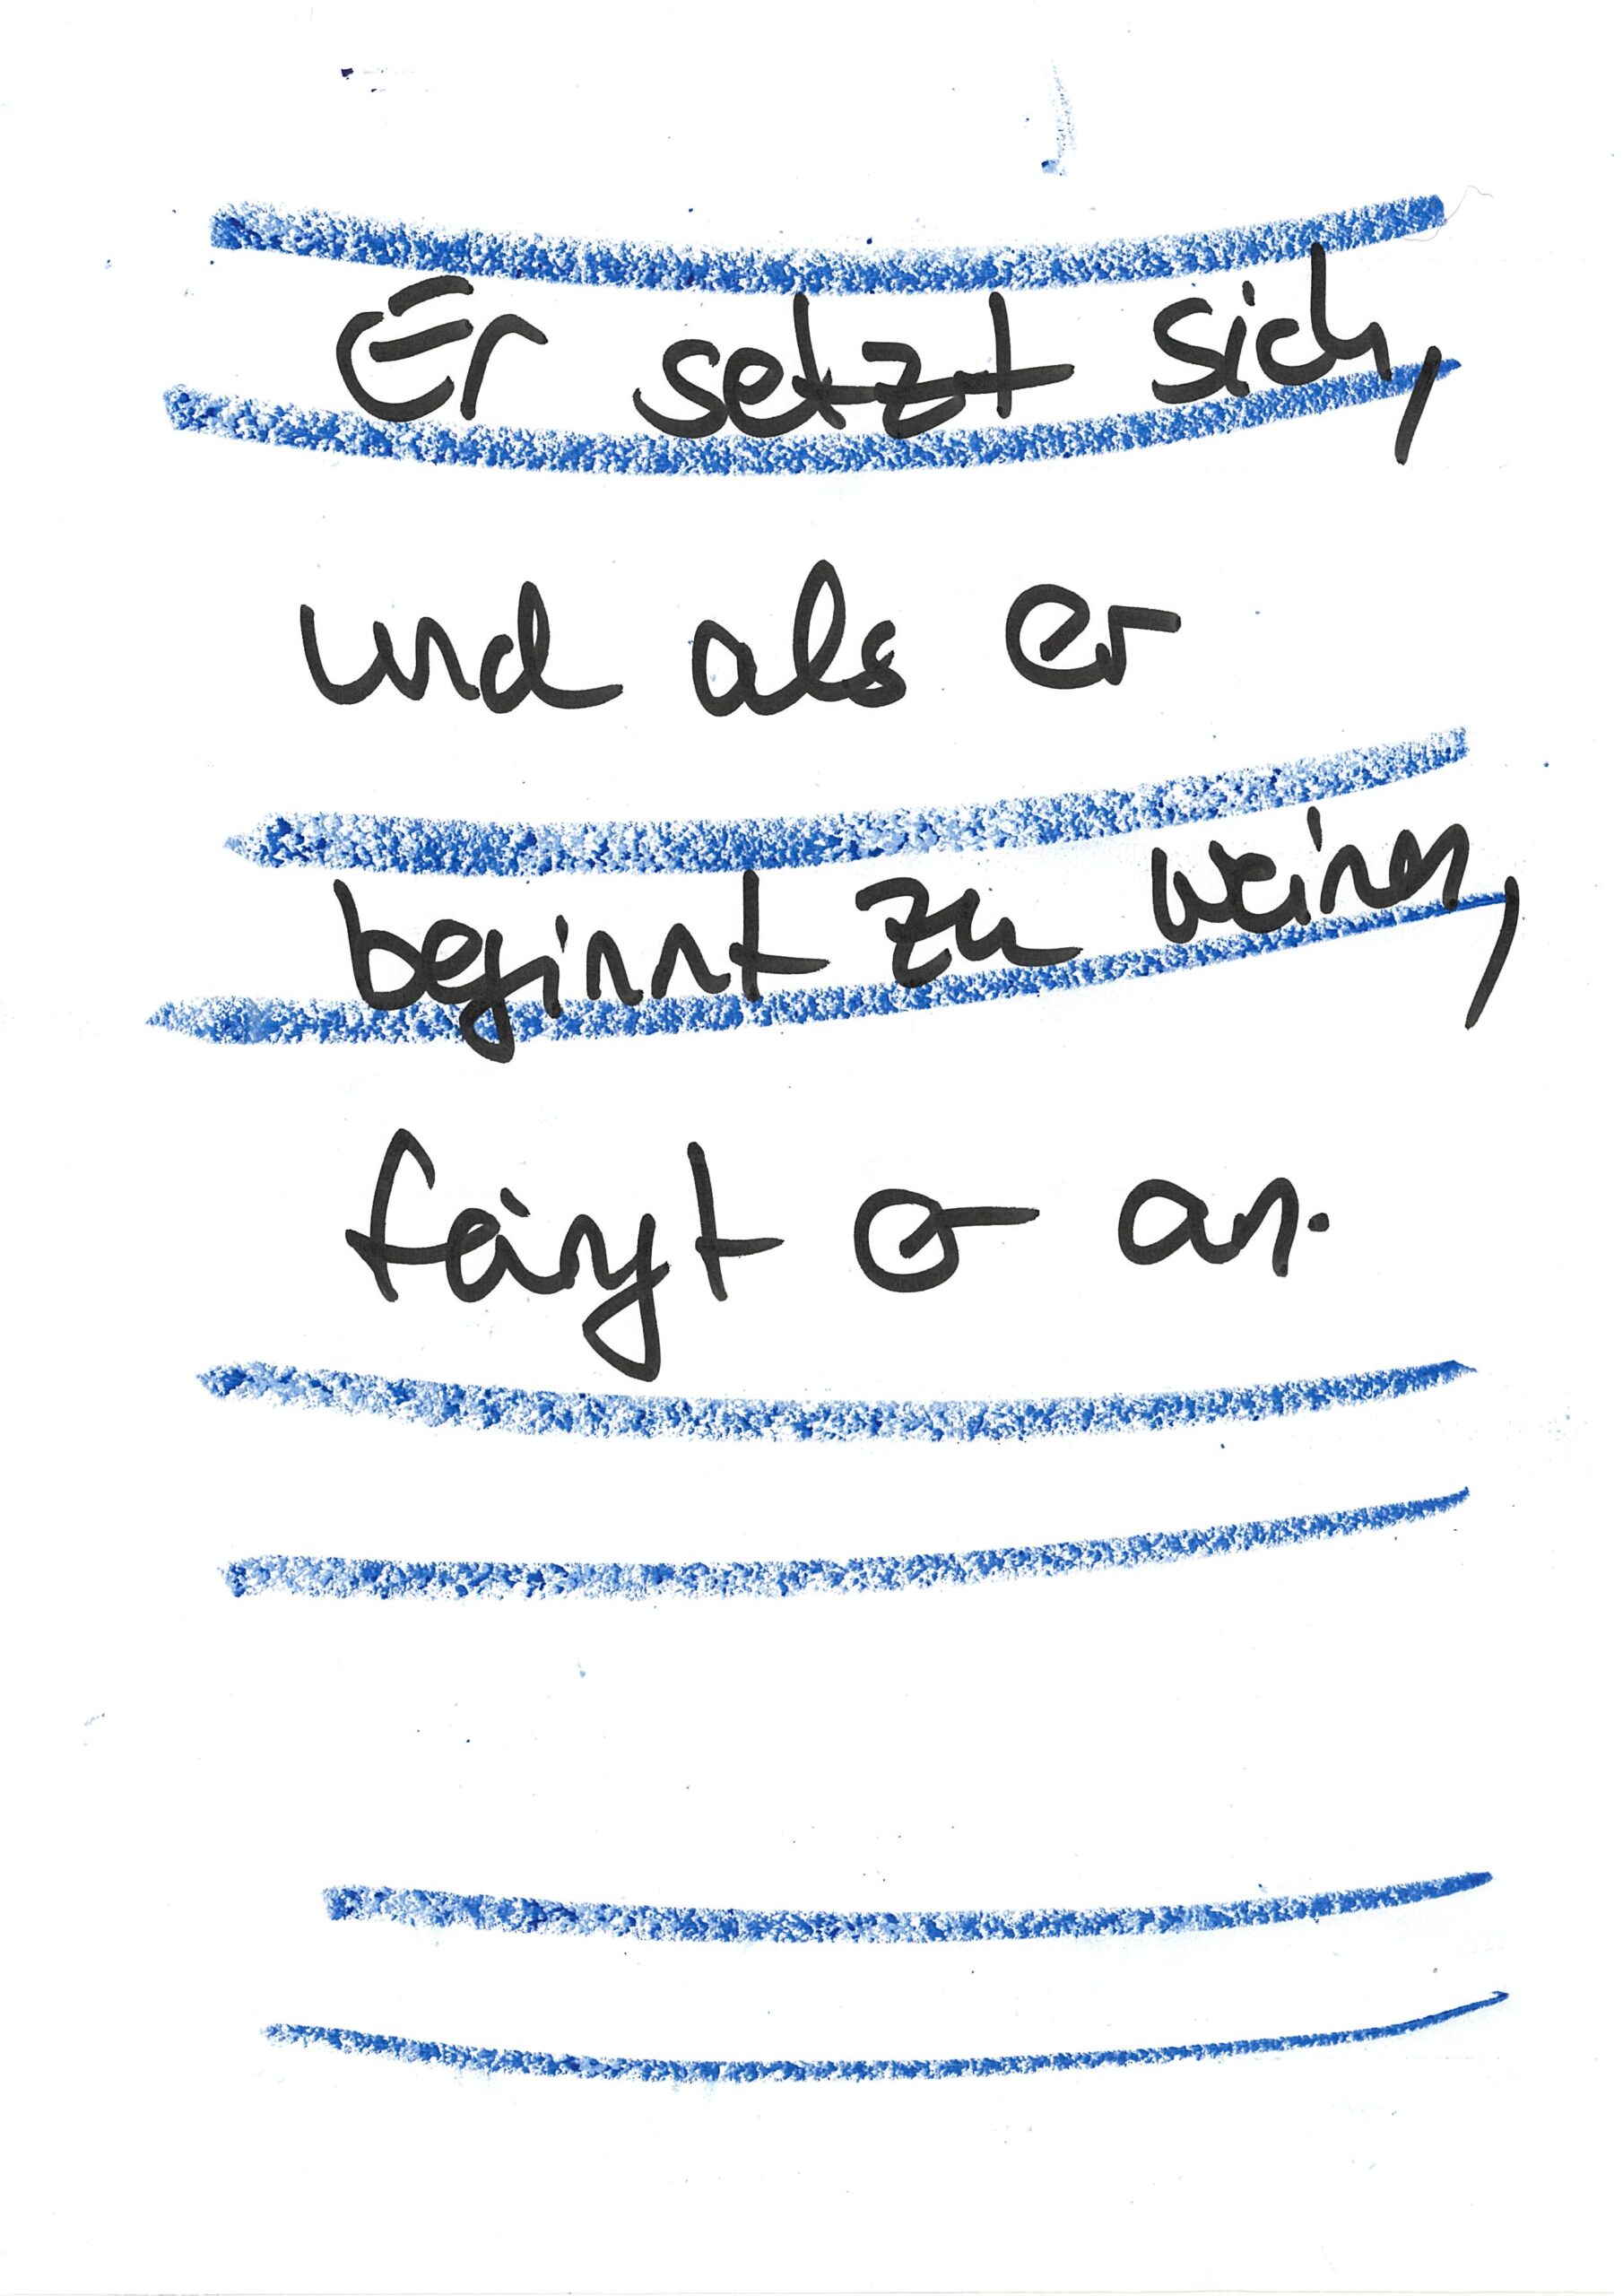 Er setzt sich,
und als er
beginnt zu weinen,
fängt er an.